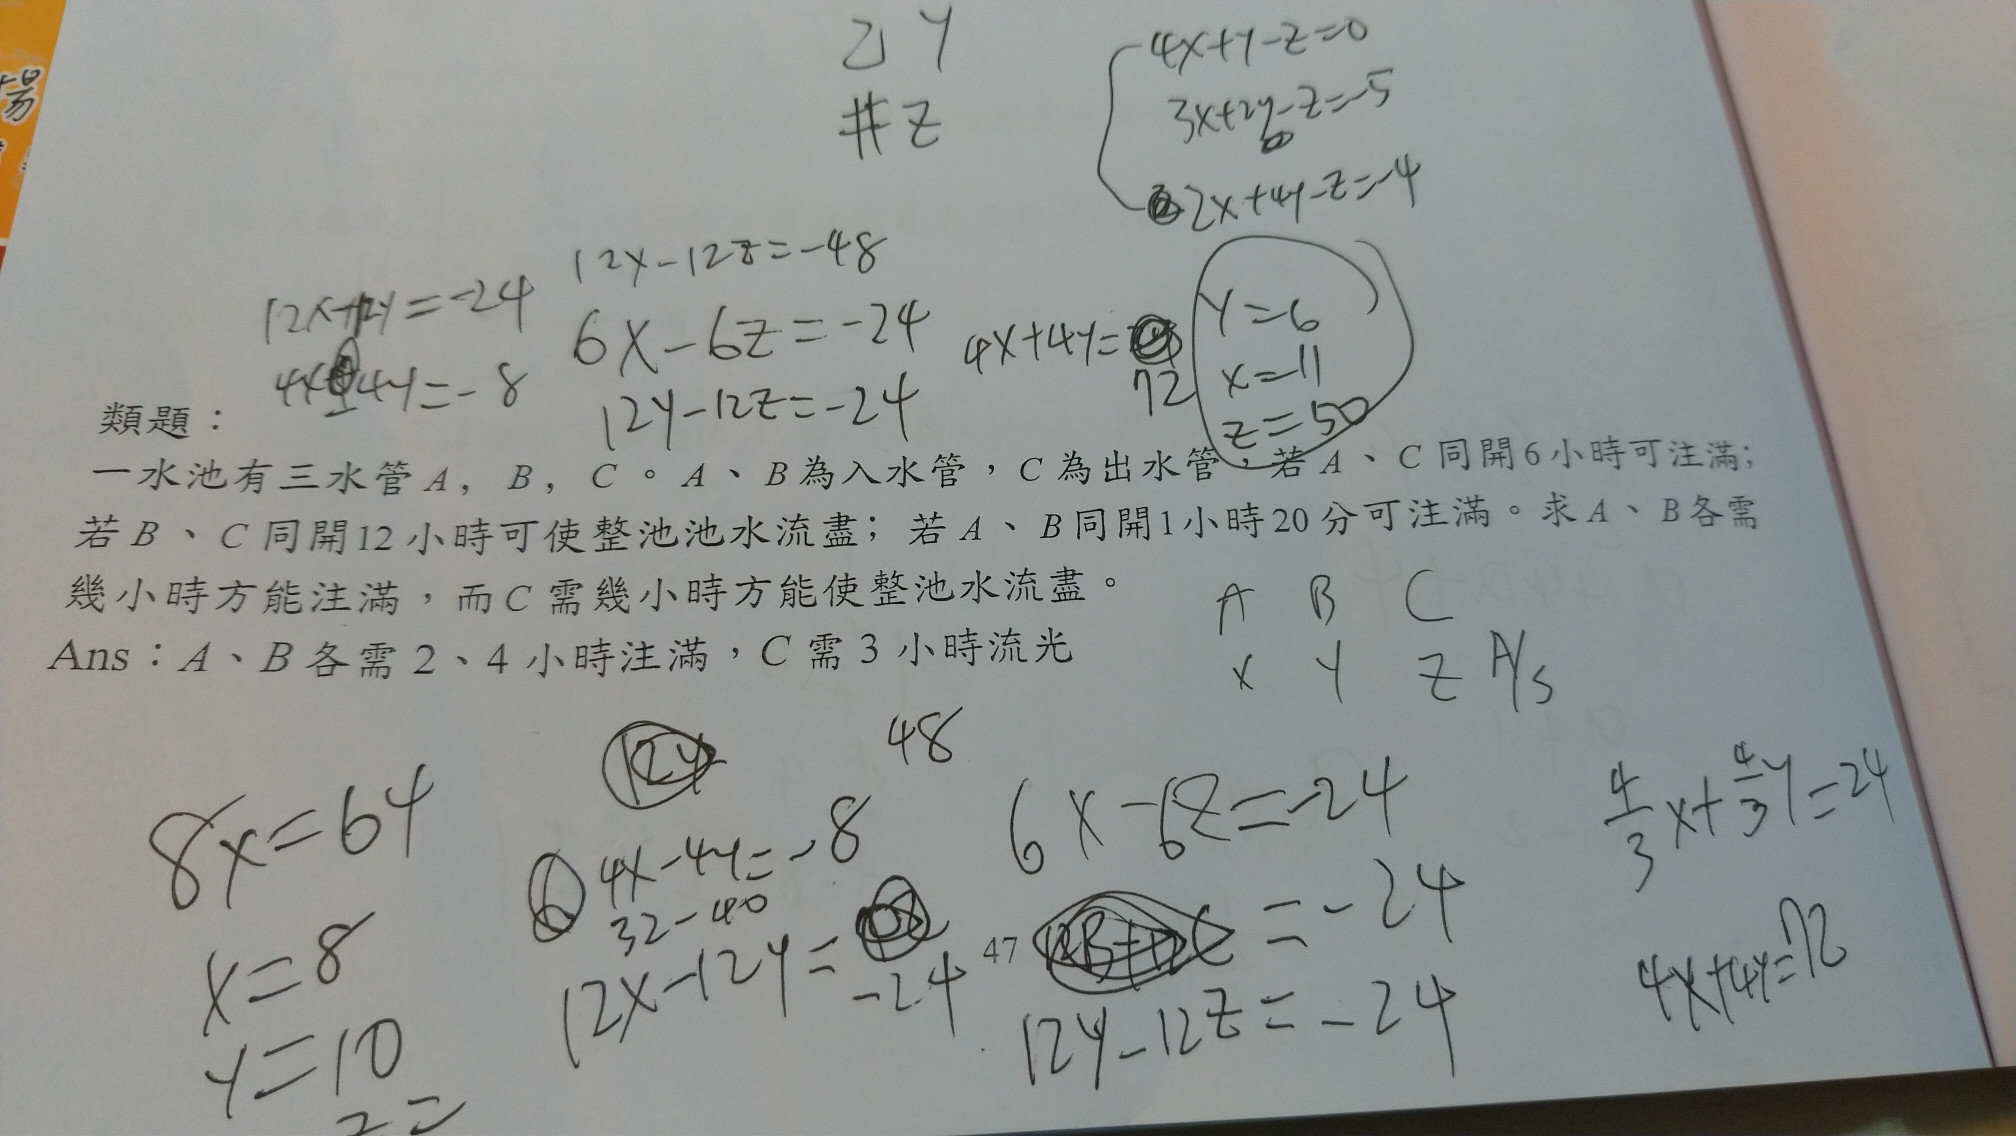 場
乙 Y
# Z
4x+y-z=0
3x+2y-z=-5
2x+4y-z=-4
12x-12z=-48
6x-6z=-24
12y-12z=-24
=-24
4y=-8
4x+4y=
72
y=6
x=11
z=50
類題：
一水池有三水管 A, B, C。A、B為入水管，C為出水管，若A、C同開6小時可注滿;
若B、C同開12小時可使整池池水流盡; 若A、B同開1小時20分可注滿。求A、B各需
幾小時方能注滿，而C需幾小時方能使整池水流盡。
Ans：A、B各需 2、4 小時注滿，C需 3 小時流光
A B C
x y z
8x=64
x=8
y=10
z=
12y
48
6
4x-4y=-8
32-40
12x-12y=
-24
47
6x-6z=-24
=-24
12y-12z=-24
4/3x+4/3y=24
4x+4y=72